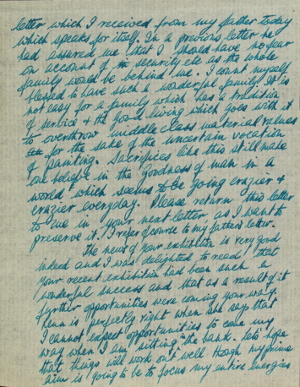 letter which I received from my father today
which speaks for itself. In a previous letter he
had assured me that I should have no fear
on account of security etc as the whole
family would be behind me. I count myself
blessed to have such a wonderful family. It is
not easy for a family which has a tradition
of service & the good living which goes with it
to overthrow middle class material values
for the sake of the uncertain vocation
of painting. Sacrifices like this still make
one believe in the goodness of man in a
world which seems to be going crazier &
crazier everyday. Please return this letter
to me in your next letter, as I want to
preserve it. I refer of course to my father's letter.
The news of your exhibition is very good
indeed and I was delighted to read that
your recent exhibition had been such a
wonderful success and that as a result of it
further opportunities were coming your way.
is perfectly right when she says that
I cannot expect opportunities to come my
way when I am sitting the bank. Lets hope
that things will work out well though my prime
aim is going to be to focus my entire energies